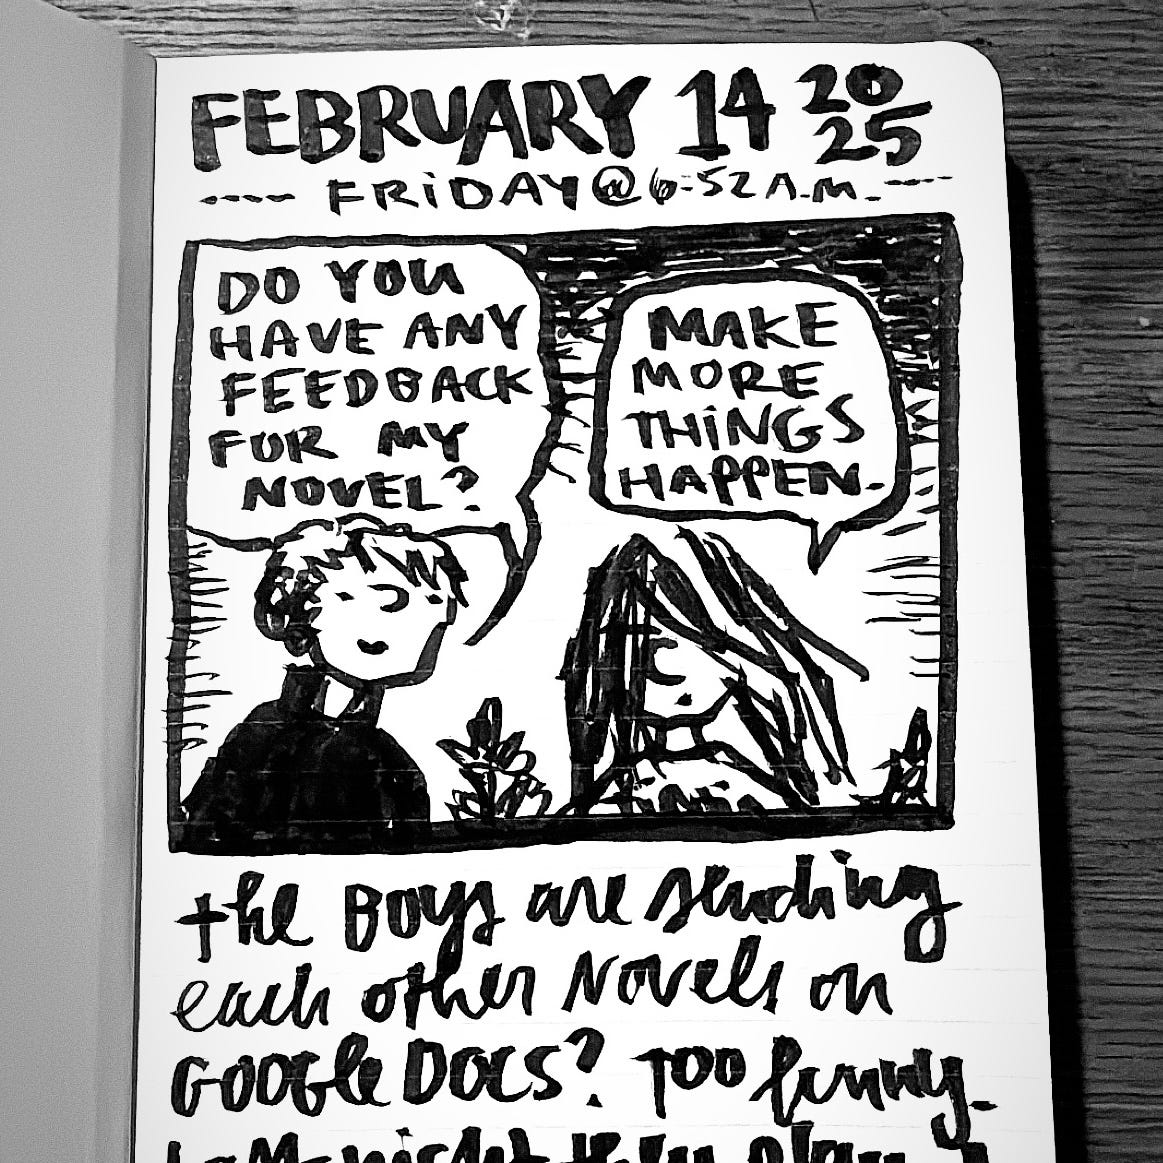 FEBRUARY 14 2025
FRiDAY @ 6:52 A.M.
DO YOU
HAVE ANY
FEEDBACK
FOR MY
NOVEL?
MAKE
MORE
THiNGS
HAPPEN.
the Boys are sending
each other Novels on
GOOGle DOCS? Too funny.
night they